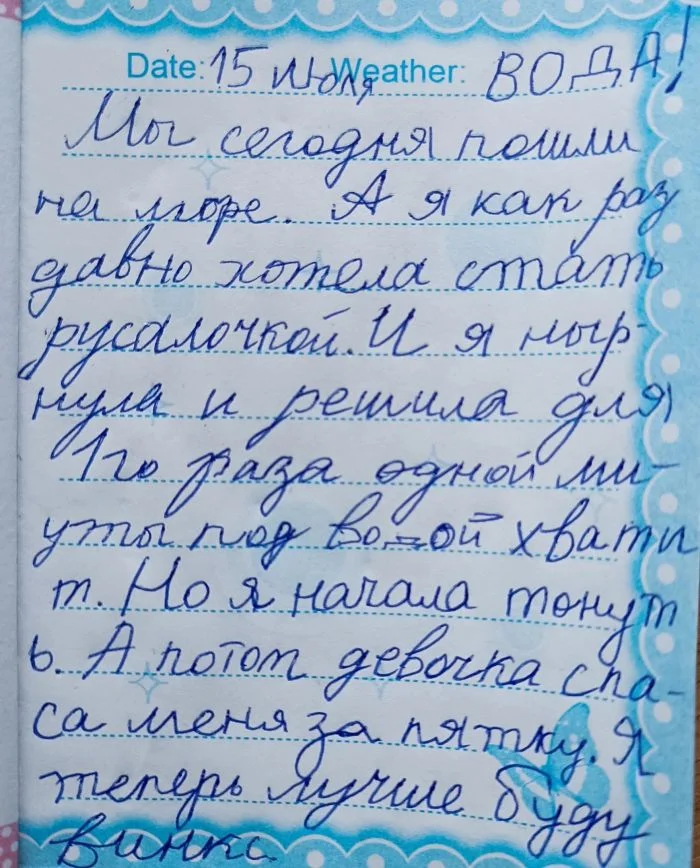 Date: 15 июля Weather: ВОДА!
Мы сегодня пошли
на море. А я как раз
давно хотела стать
русалочкой. И я ныр-
нула и решила для
1го раза одной ми-
уты под водой хвати
т. Но я начала тонут
ь. А потом девочка спа-
са меня за пятку. Я
теперь лучше буду
винкс